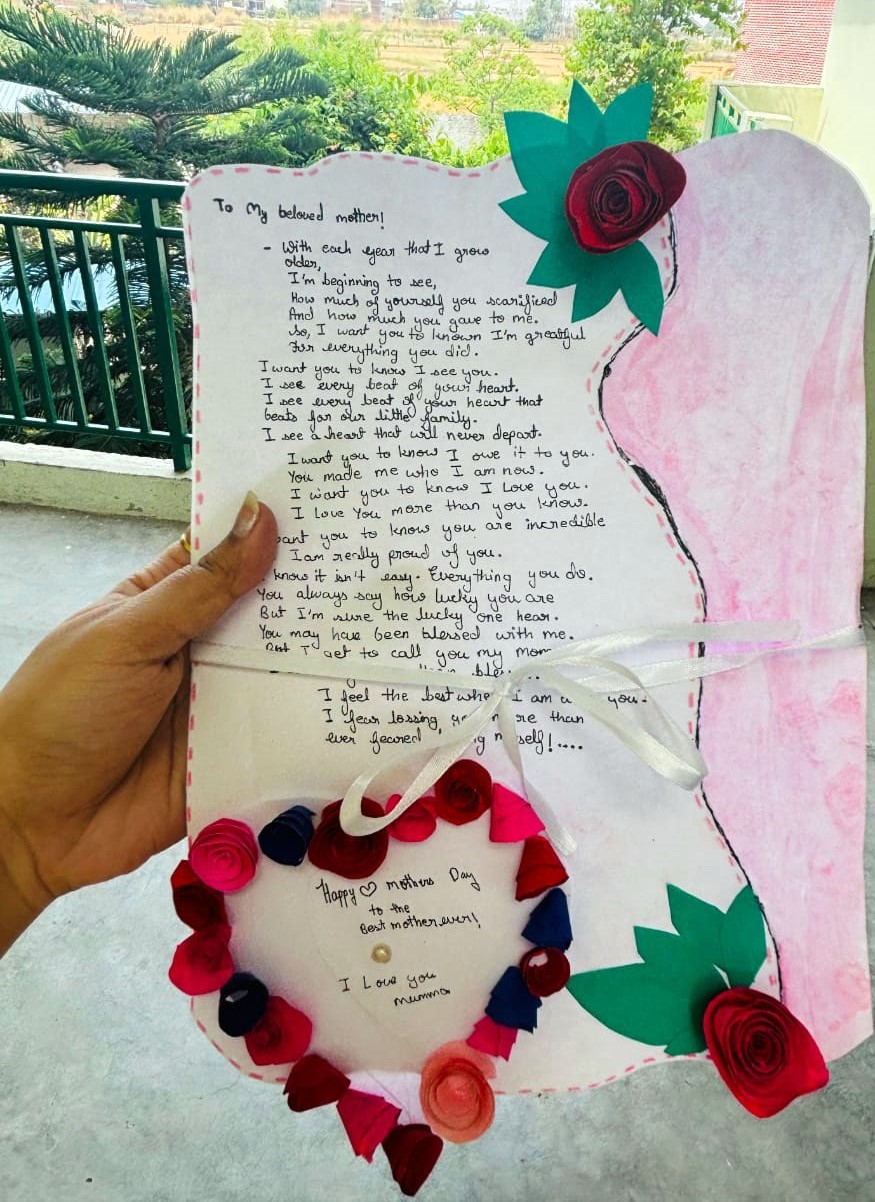 To My beloved mother!
- With each year that I grow
older,
I'm beginning to see,
How much of yourself you scarificed
And how much you gave to me.
So, I want you to known I'm greatful
For everything you did.
I want you to know I see you.
I see every beat of your heart.
I see every beat of your heart that
beats for our little family.
I see a heart that will never depart.
I want you to know I owe it to you.
You made me who I am now.
I want you to know I Love you.
I Love You more than you know.
you to know you are incredible
I am really proud of you.
know it isn't easy. Everything you do.
You always say how lucky you are
But I'm sure the lucky one hear.
You may have been blessed with me.
to call you my mom
I feel the best I am you.
I fear lossing than
ever feared
Happy ♡ mothers Day
to the
Best mother ever!
I Love you
mumma